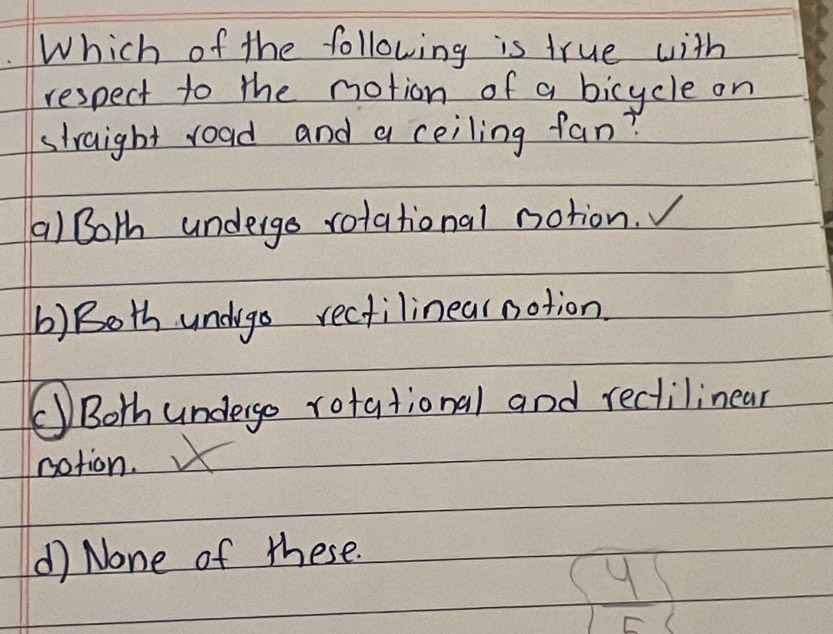 Which of the following is true with
respect to the motion of a bicycle on
straight road and a ceiling fan?
a) Both undergo rotational motion. ✓
b) Both undrgo rectilinear motion.
c) Both undergo rotational and rectilinear
motion.
d) None of these.
4
5